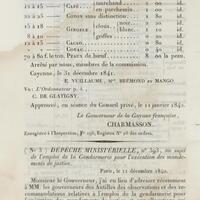 12 à 15 — CAFÉ marchand
en parchemin
COTON sans distinction
GIROFLE clous
griffes
70 à 80 f. le 100. PEAUX de bœuf
Arrêté par nous, membres de la commission.
Cayenne, le 31 décembre 1841.
E. VUILLEAUME, BRÉMOND
Vu : L'Ordonnateur p. i.
C. DE GLATIGNY.
Approuvé, en séance du Conseil privé, le 11 janvier 1842.
Le Gouverneur de la Guyane française,
CHARMASSON.
Enregistré à l'Inspection, F° 196, Registre N° 28 des ordres.
(N° 3) DÉPÊCHE MINISTÉRIELLE, n° 393, au sujet
de l'emploi de la Gendarmerie pour l'exécution des mande-
ments de justice.
Paris, le 11 décembre 1840.
Monsieur le Gouverneur, j'ai eu lieu d'adresser récemment
à MM. les gouverneurs des Antilles des observations et des re-
commandations relatives à l'emploi de la gendarmerie pour